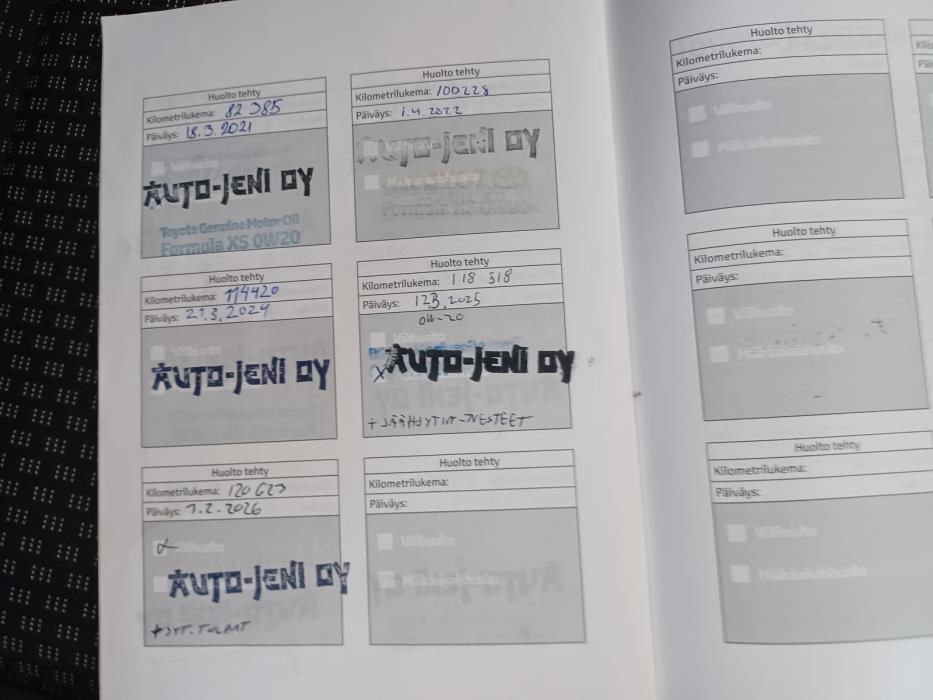 Huolto tehty
Kilometrilukema: 82 385
Päiväys: 18.3.2021
Välihuolto
AUTO-JENI OY
Toyota Genuine Motor Oil
Formula XS 0W20
Huolto tehty
Kilometrilukema: 100228
Päiväys: 1.4.2022
Välihuolto
AUTO-JENI OY
Määräaikaishuolto
Formula XS 0W20
Huolto tehty
Kilometrilukema: 114420
Päiväys: 21.3.2024
Välihuolto
AUTO-JENI OY
Huolto tehty
Kilometrilukema: 118 518
Päiväys: 123.2025
0W-20
X AUTO-JENI OY
+ JÄÄHDYTIN-NESTEET
Huolto tehty
Kilometrilukema: 120 623
Päiväys: 7.2.2026
Välihuolto
AUTO-JENI OY
+ SYT. TULPAT
Huolto tehty
Kilometrilukema:
Päiväys:
Välihuolto
Määräaikaishuolto
Huolto tehty
Kilometrilukema:
Päiväys:
Välihuolto
Määräaikaishuolto
Huolto tehty
Kilometrilukema:
Päiväys:
Välihuolto
Määräaikaishuolto
Huolto tehty
Kilometrilukema:
Päiväys:
Välihuolto
Määräaikaishuolto